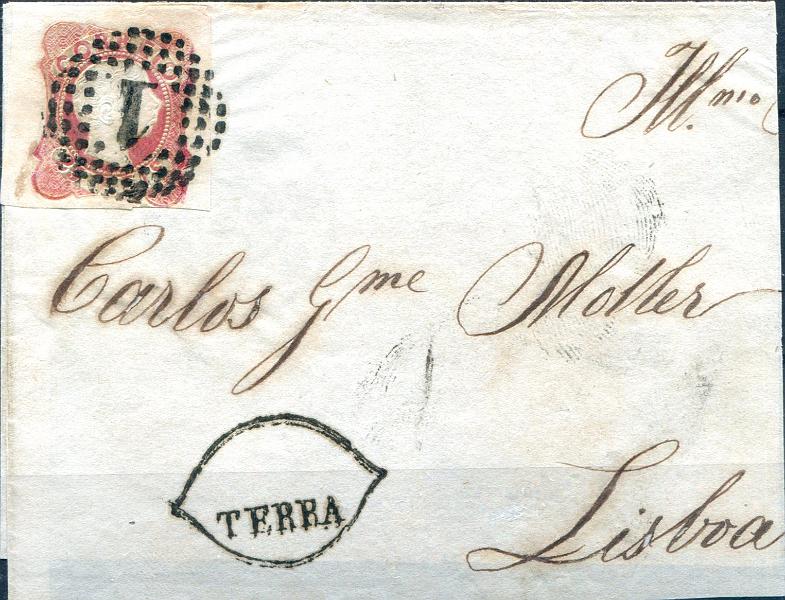 1
Illmo
Carlos Gme Moller
TERRA
Lisboa